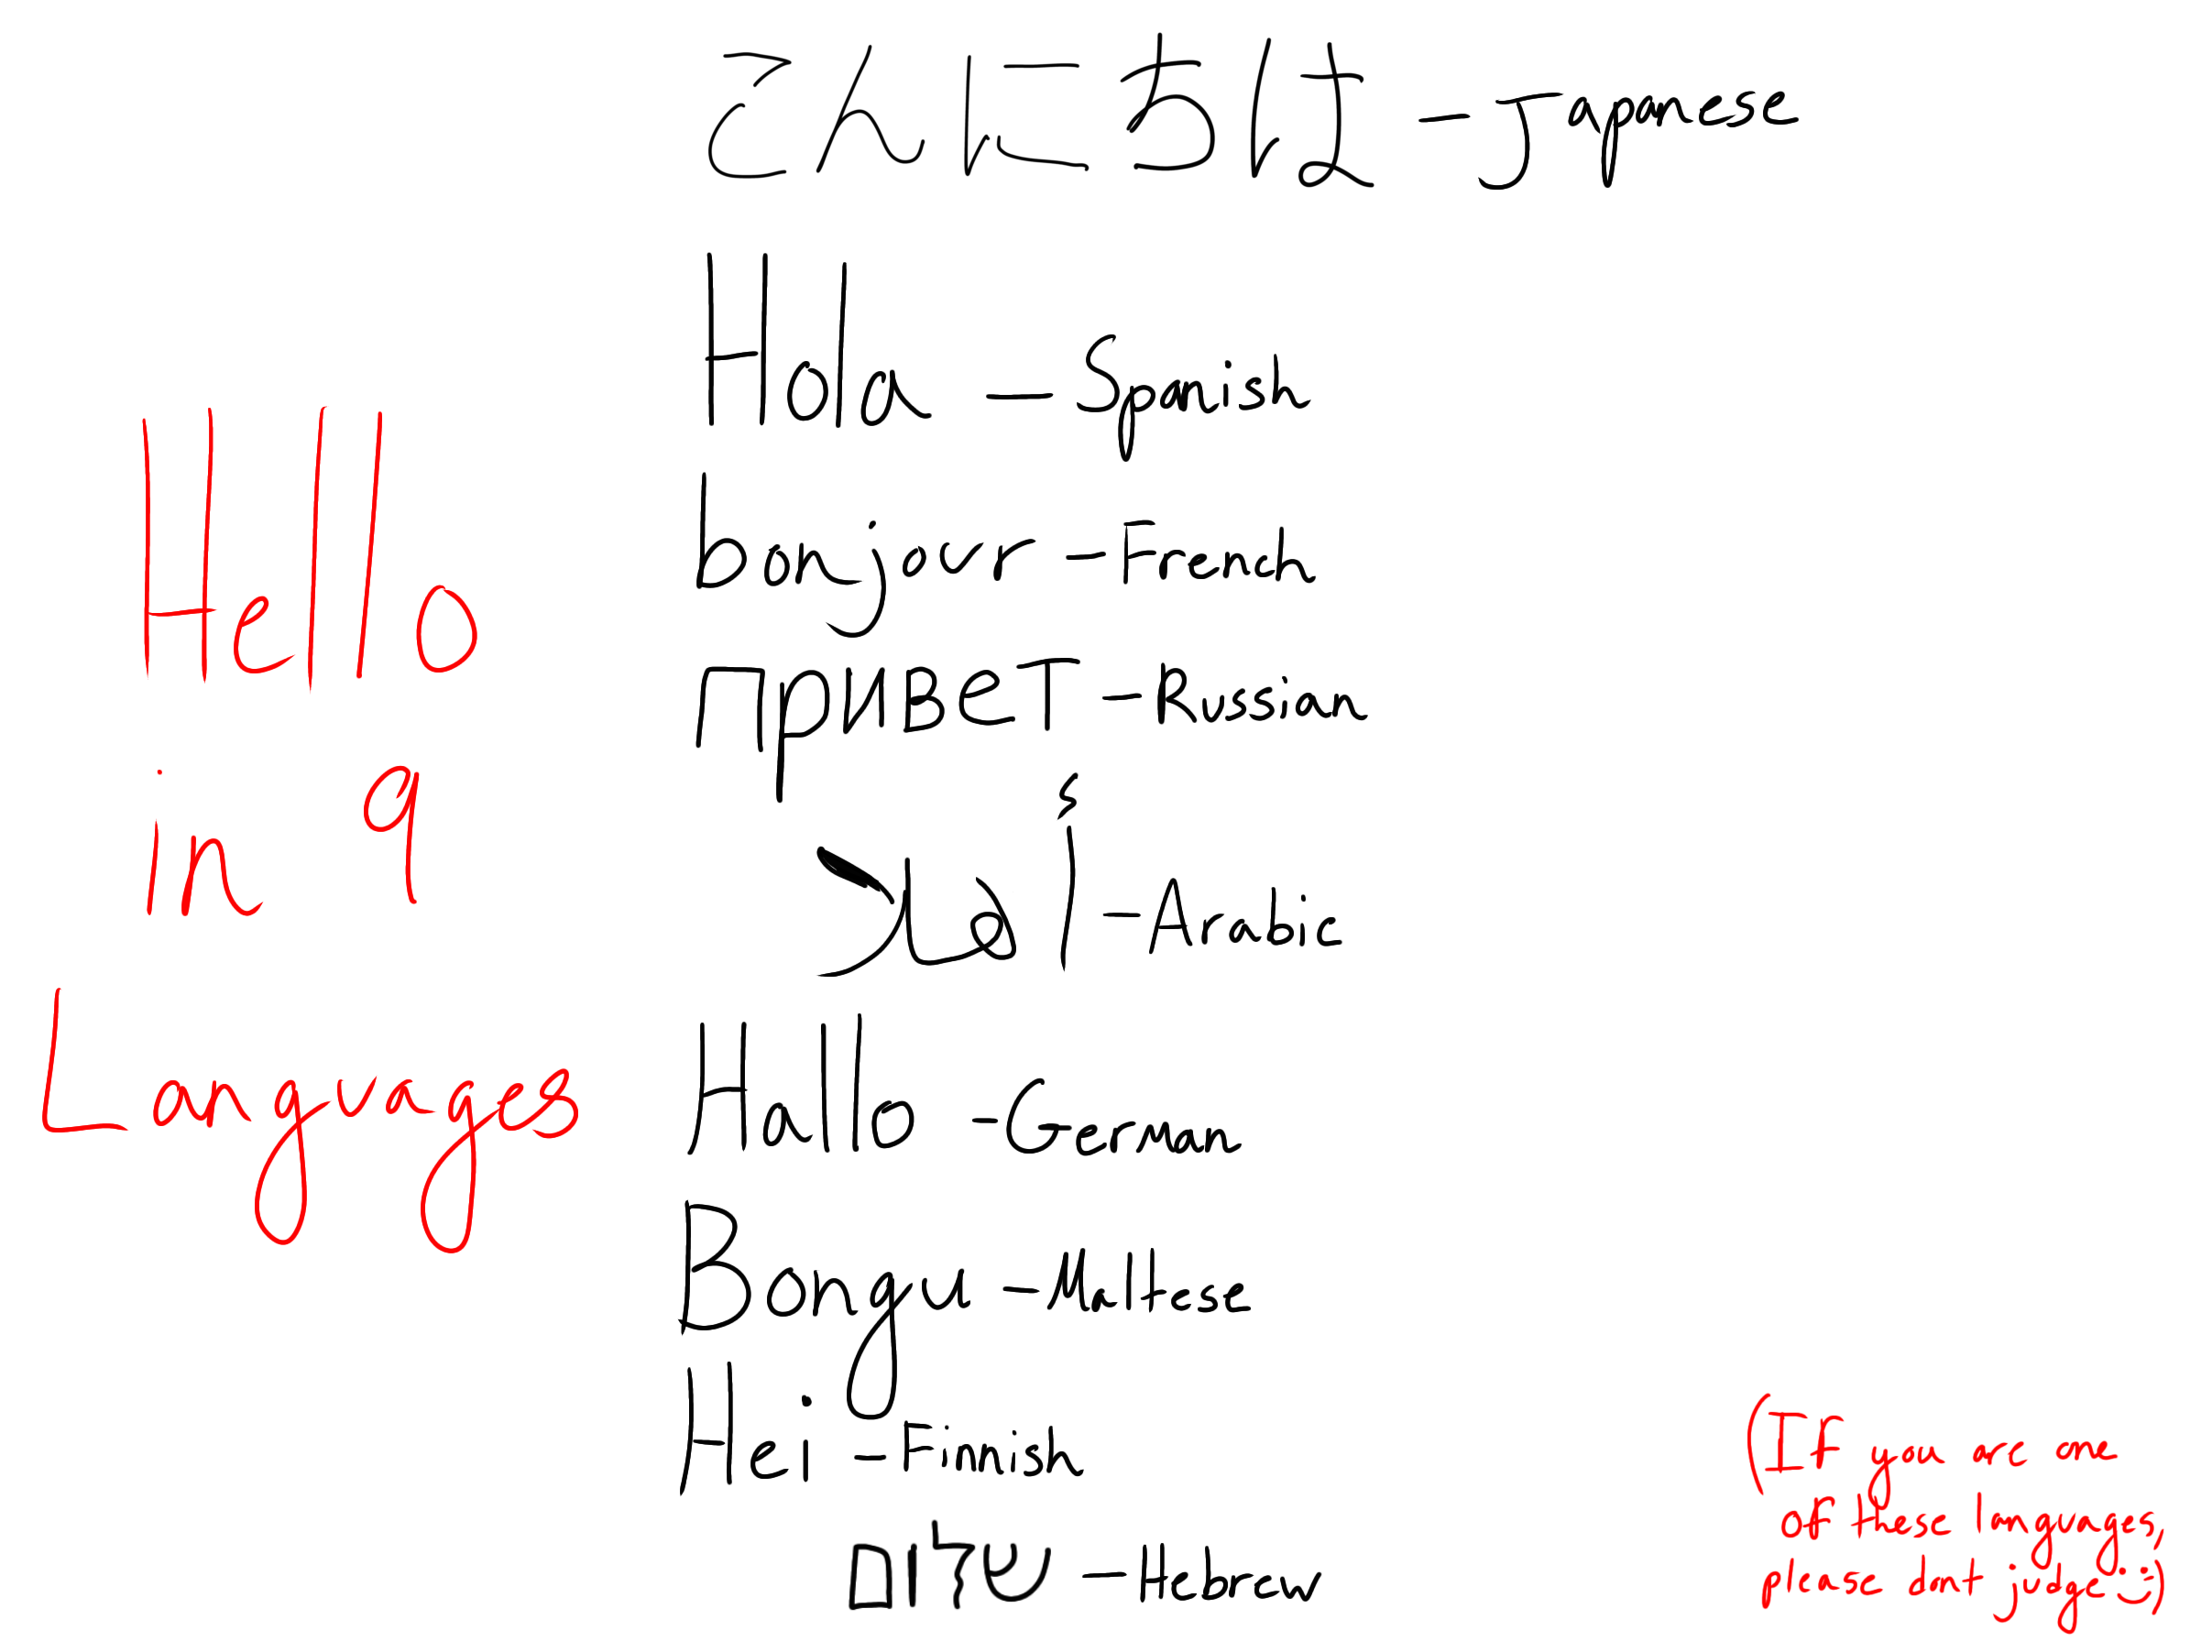 Hello
in 9
Languages
こんにちは - Japanese
Hola - Spanish
bonjour - French
привет - Russian
أهلا - Arabic
Hallo - German
Bongu - Maltese
Hei - Finnish
שלום - Hebrew
(If you are one
of these languages,
please dont judge :))